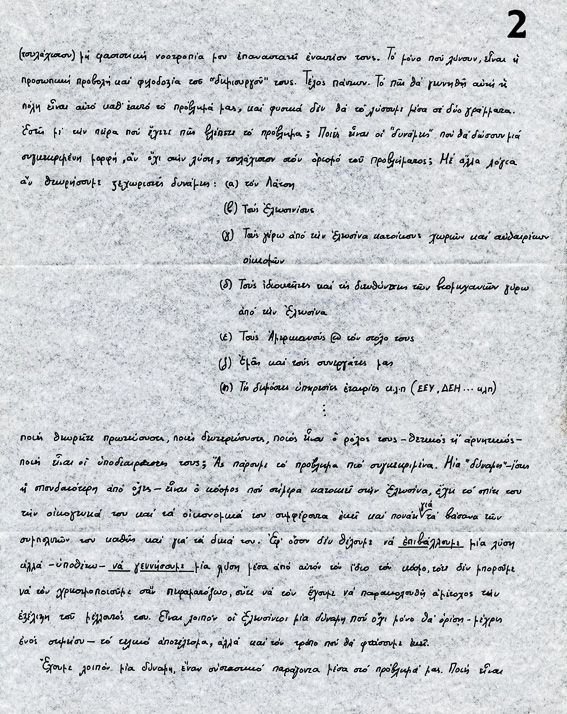 2
(τουλάχιστον) μή φασιστική νοοτροπία μου επαναστατεί εναντίον τους. Τό μόνο πού λύνουν, είναι ή
προσωπική προβολή καί φιλοδοξία τοῦ "δημιουργοῦ" τους. Τέλος πάντων. Τό πῶς θά γεννηθῆ αὐτή ἡ
πόλη εἶναι αὐτό καθ' ἑαυτό τό πρόβλημά μας, καί φυσικά δέν θά τό λύσουμε μέσα σέ δύο γράμματα.
Ἐσεῖς μέ τήν πεῖρα πού ἔχετε πῶς βλέπετε τό πρόβλημα; Ποιές εἶναι οἱ "δυνάμεις" πού θά δώσουν μιά
συγκεκριμένη μορφή, ἄν ὄχι στήν λύση, τουλάχιστον στόν ὁρισμό τοῦ προβλήματος; Μέ ἄλλα λόγια
ἄν θεωρήσουμε ξεχωριστές δυνάμεις: (α) τόν Λάτση
(β) Τούς Ἐλευσινίους
(γ) Τούς γύρω ἀπό τήν Ἐλευσίνα κατοίκους χωριῶν καί αὐθαιρέτων
οἰκισμῶν
(δ) Τούς ἰδιοκτῆτες καί τίς διευθύνσεις τῶν βιομηχανιῶν γύρω
ἀπό τήν Ἐλευσίνα
(ε) Τούς Ἀμερικανούς @ τόν στόλο τους
(ζ) Ἐμᾶς καί τούς συνεργάτες μας
(η) Τίς δημόσιες ὑπηρεσίες ἑταιρίες κ.λ.π (ΣΕΥ, ΔΕΗ ... κ.λπ)
⋮
ποιές θεωρεῖτε πρωτεύουσες, ποιές δευτερεύουσες, ποιός εἶναι ὁ ρόλος τους - θετικός ἤ ἀρνητικός -
ποιές εἶναι οἱ ὑποδιαιρέσεις τους; Ἄς πάρουμε τό πρόβλημα πιό συγκεκριμένα. Μία "δύναμη" - ἴσως
ἡ σπουδαιότερη ἀπό ὅλες - εἶναι ὁ κόσμος πού σήμερα κατοικεῖ στήν Ἐλευσίνα, ἔχει τό σπίτι του
τήν οἰκογένειά του καί τά οἰκονομικά του συμφέροντα ἐκεῖ καί πονάει γιά τά βάσανα τῶν
συμπολιτῶν του καθώς καί γιά τά δικά του. Ἐφ' ὅσον δέν θέλουμε νά ἐπιβάλλουμε μία λύση
ἀλλά - ὑποθέτω - νά γεννήσουμε μία λύση μέσα ἀπό αὐτόν τόν ἴδιο τόν κόσμο, τότε δέν μποροῦμε
νά τόν χρησιμοποιοῦμε σάν πειραματόζωο, οὔτε νά τόν ἔχουμε νά παρακολουθῆ ἀμέτοχος τήν
ἐξέλιξη τοῦ μέλλοντός του. Εἶναι λοιπόν οἱ Ἐλευσίνιοι μία δύναμη πού ὄχι μόνο θά ὁρίση - μέχρις
ἑνός σημείου - τό τελικό ἀποτέλεσμα, ἀλλά καί τόν τρόπο πού θά φτάσουμε ἐκεῖ.
Ἔχουμε λοιπόν μία δύναμη, ἕναν οὐσιαστικό παράγοντα μέσα στό πρόβλημά μας. Ποιές εἶναι